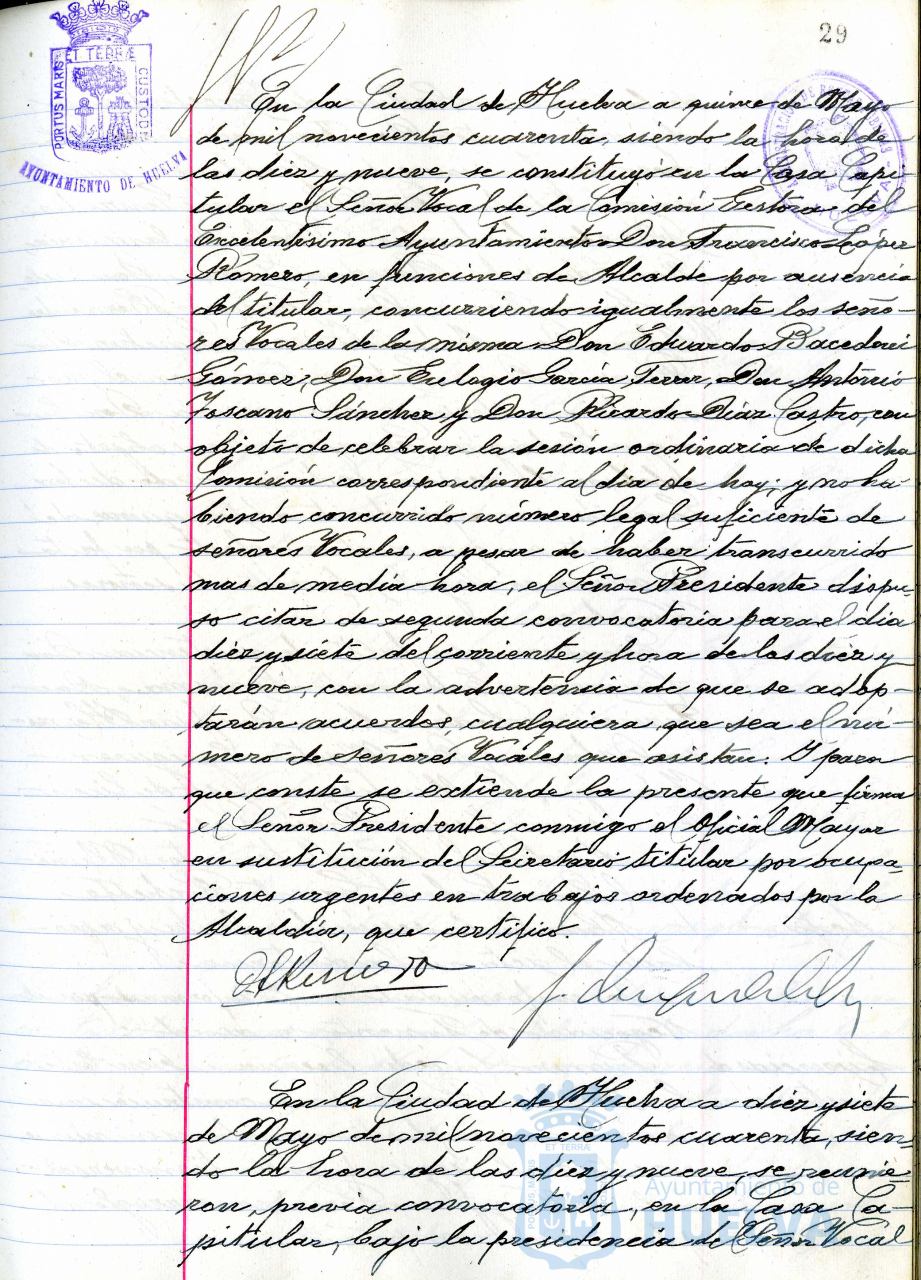 29
PORTUS MARIS ET TERRÆ CUSTODIA
AYUNTAMIENTO DE HUELVA
En la Ciudad de Huelva a quince de Mayo
de mil novecientos cuarenta, siendo la hora de
las diez y nueve, se constituyó en la Casa Capi-
tular el Señor Vocal de la Comisión Gestora del
Excelentísimo Ayuntamiento Don Francisco López
Romero, en funciones de Alcalde por ausencia
del titular, concurriendo igualmente los seño-
res Vocales de la misma Don Eduardo
Gómez, Don Eulogio García Terror, Don Antonio
Toscano Sánchez y Don Ricardo Díaz Castro, con
objeto de celebrar la sesión ordinaria de dicha
Comisión correspondiente al dia de hoy; y no ha-
biendo concurrido número legal suficiente de
señores Vocales, a pesar de haber transcurrido
mas de media hora, el Señor Presidente dispu-
so citar de segunda convocatoria para el dia
diez y siete del corriente y hora de las diez y
nueve, con la advertencia de que se adop-
tarán acuerdos, cualquiera que sea el nú-
mero de señores Vocales que asistan. Y para
que conste se extiende la presente que firma
el Señor Presidente conmigo el Oficial Mayor
en sustitución del Secretario titular por ocupa-
ciones urgentes en trabajos ordenados por la
Alcaldía, que certifico.
En la Ciudad de Huelva a diez y siete
de Mayo de mil novecientos cuarenta, sien-
do la hora de las diez y nueve se reunie-
ron, previa convocatoria, en la Casa Ca-
pitular, bajo la presidencia de Señor Vocal
Ayuntamiento de
HUELVA